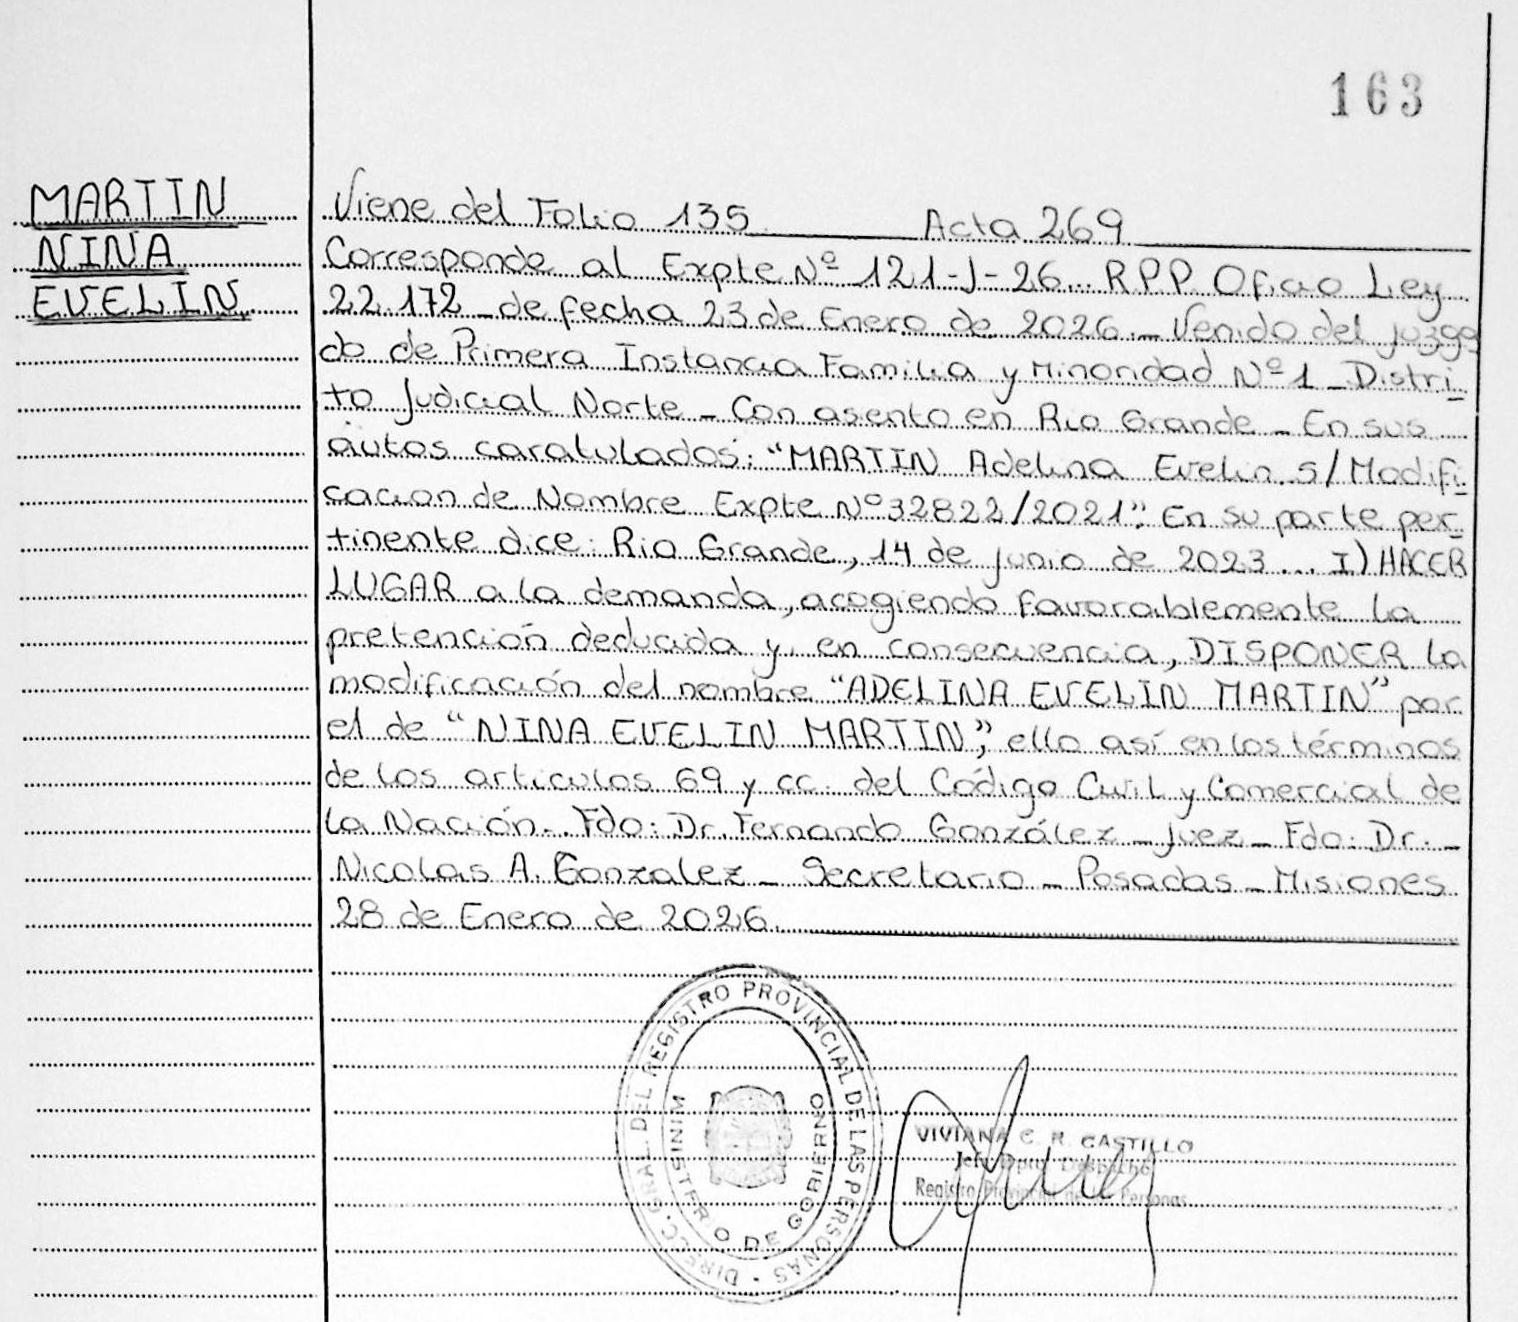 163
MARTIN
NINA
EVELIN
Viene del Folio 135 Acta 269
Corresponde al Expte Nº 121-J-26... RPP Oficio Ley
22.172 - de fecha 23 de Enero de 2026. - Venido del juzga
do de Primera Instancia Familia y Minoridad Nº 1 - Distri-
to Judicial Norte - Con asento en Rio Grande - En sus
autos caratulados: "MARTIN Adelina Evelin s/ Modifi-
cacion de Nombre Expte Nº 32822/2021". En su parte per-
tinente dice: Rio Grande, 14 de junio de 2023... I) HACER
LUGAR a la demanda, acogiendo favorablemente la
pretención deducida y, en consecuencia, DISPONER la
modificación del nombre "ADELINA EVELIN MARTIN" por
el de "NINA EVELIN MARTIN", ello así en los términos
de los artículos 69 y cc. del Código Civil y Comercial de
la Nación. - Fdo: Dr. Fernando González - Juez - Fdo: Dr. -
Nicolas A. Gonzalez - Secretario - Posadas - Misiones
28 de Enero de 2026.
DIRECC. GRAL. DEL REGISTRO PROVINCIAL DE LAS PERSONAS
MINISTERIO DE GOBIERNO
VIVIANA C. R. CASTILLO
Jefa Dpto. Despacho
Registro Provincial de las Personas